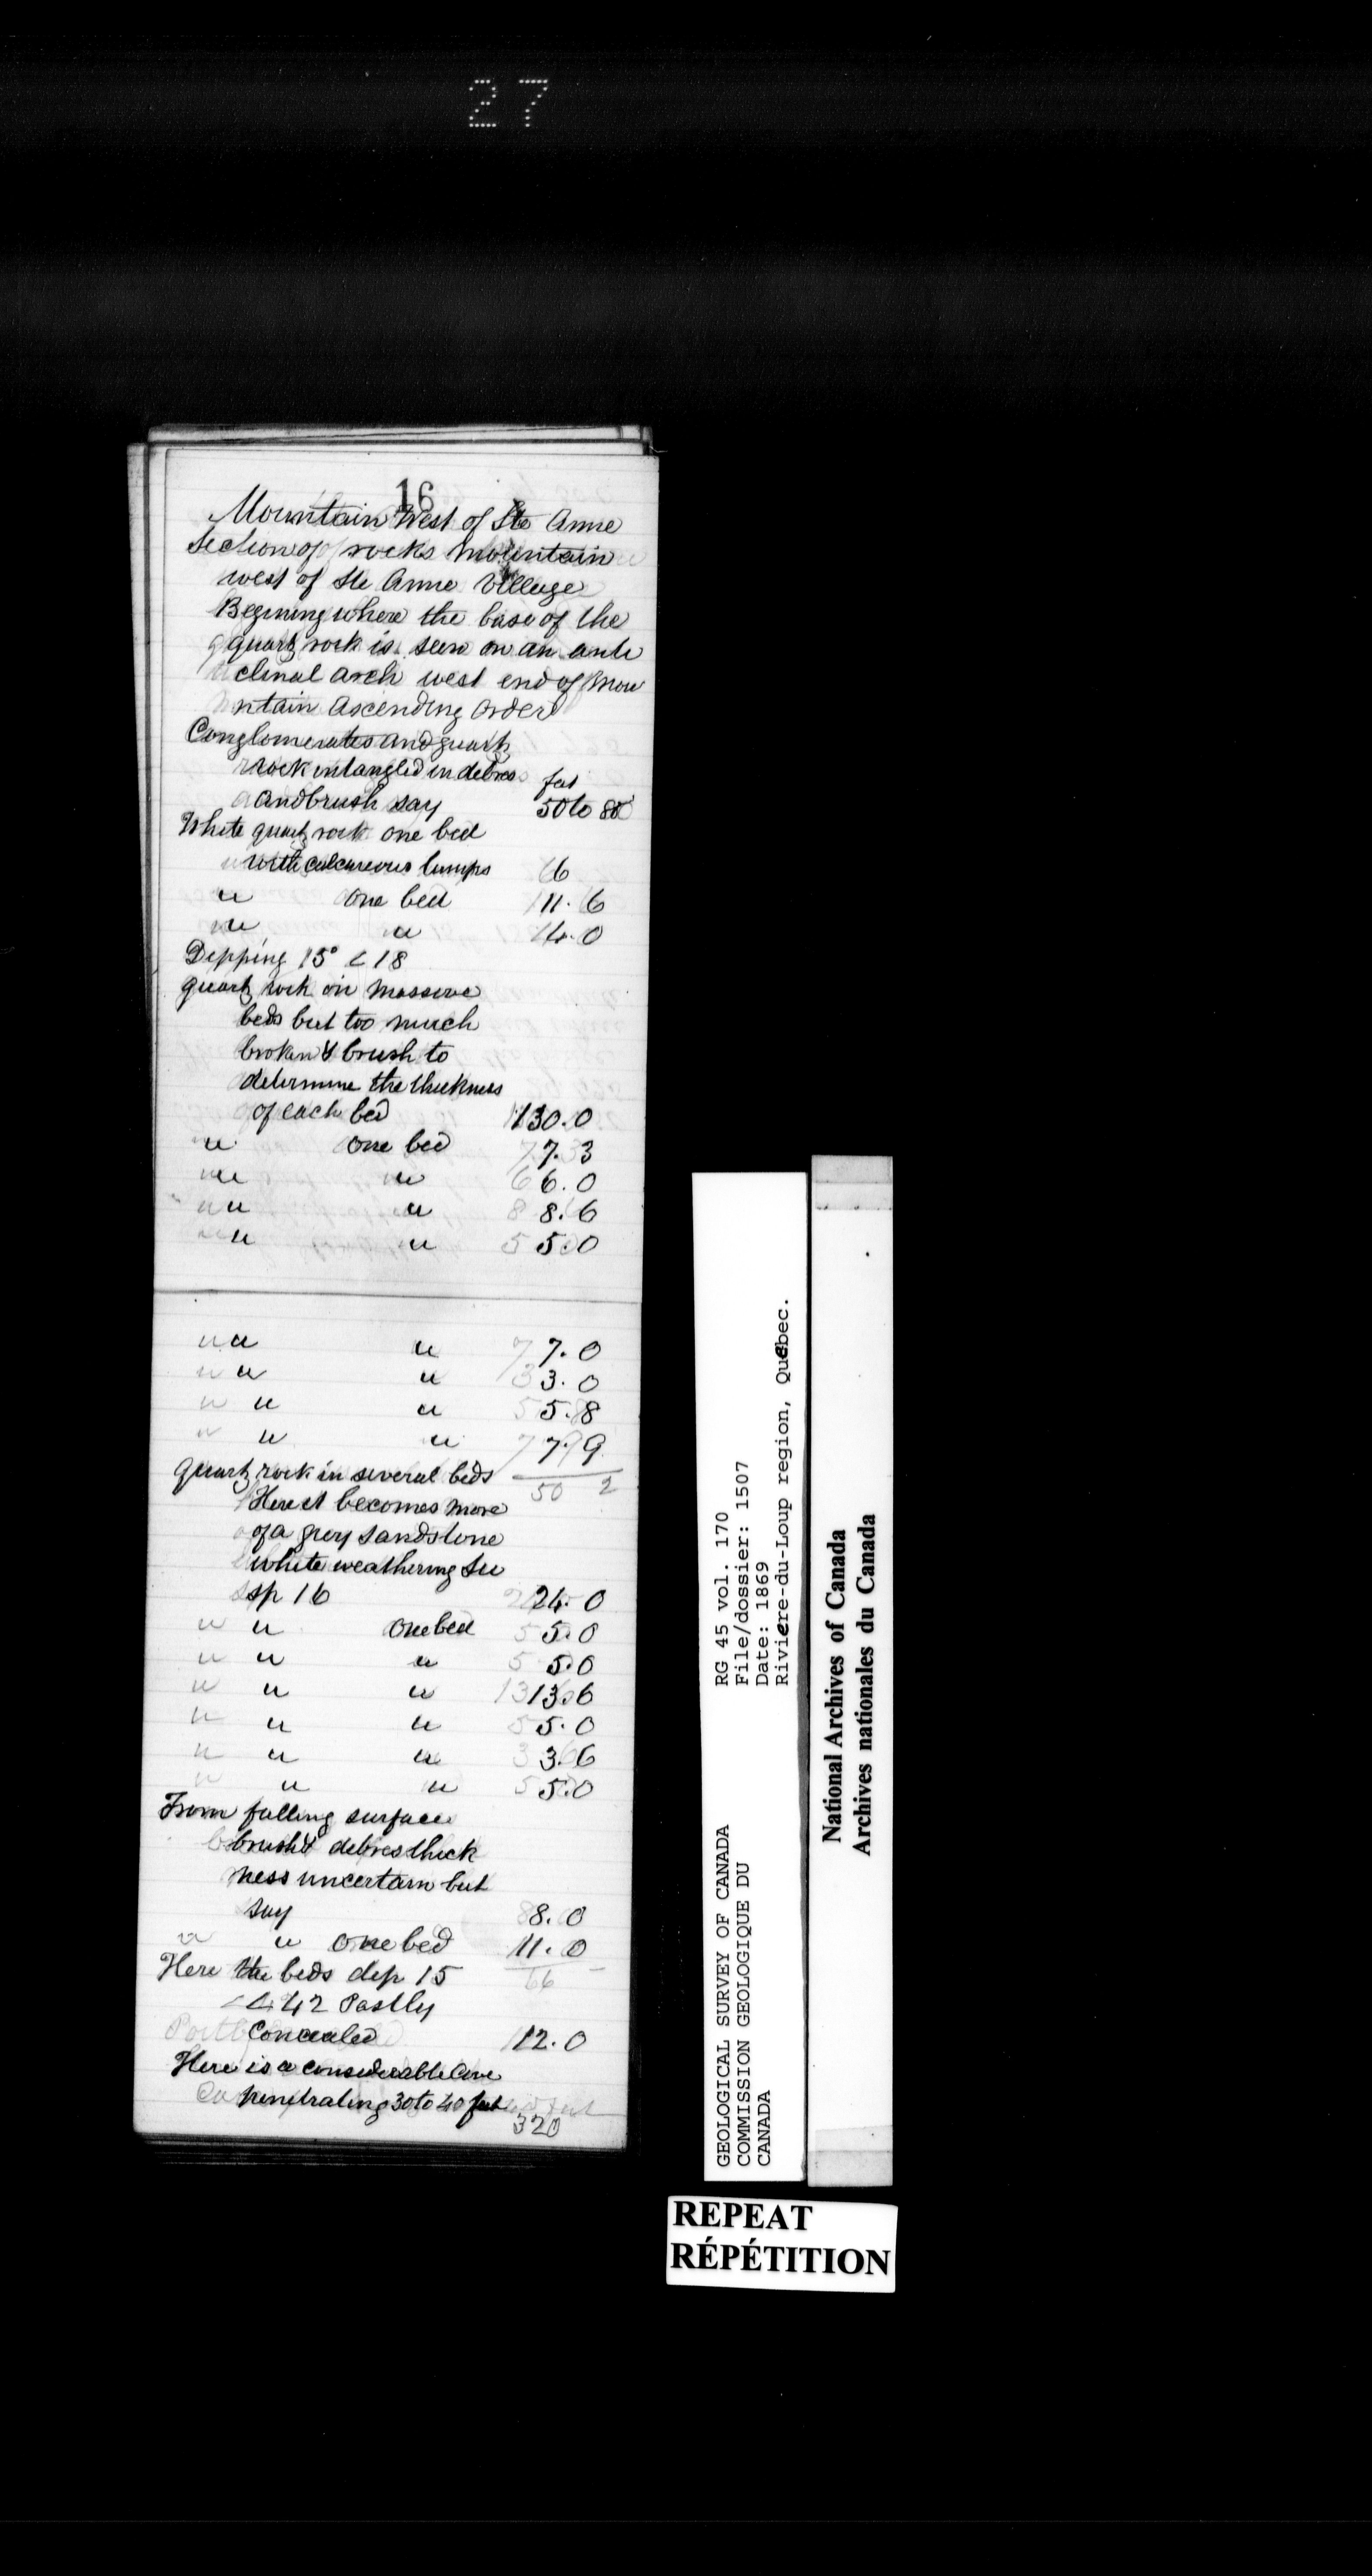 27
16
Mountain West of Ste Anne
Section of rocks mountain
west of Ste Anne Village
Begining where the base of the
quartz rock is seen on an anti
clinal arch west end of mou
ntain ascending order
Conglomerates and quartz
rock intangled in debres
and brush say feet 50 to 80
White quartz rock one bed
with calcareous lumps 6
" one bed 11.6
" " 14.0
Dipping 15° < 18
quartz rock in massive
beds but too much
broken & brush to
determine the thickness
of each bed 130.0
" one bed 7.3
" " 6.0
" " 8.6
" " 5.0
" " 7.0
" " 3.0
" " 5.8
" " 7.9
quartz rock in several beds
50 2
Here it becomes more
of a grey sandstone
white weathering see
sp 16 24.0
" one bed 5.0
" " 5.0
" " 13.6
" " 5.0
" " 3.6
" " 5.0
From falling surface
brush & debres thick
ness uncertain but
say 8.0
" one bed 11.0
Here the beds dip 15
66
< 42 Partly
Concealed 12.0
Here is a considerable Cave
penetrating 30 to 40 feet
320
GEOLOGICAL SURVEY OF CANADA
COMMISSION GEOLOGIQUE DU
CANADA
RG 45 vol. 170
File/dossier: 1507
Date: 1869
Riviere-du-Loup region, Quebec.
National Archives of Canada
Archives nationales du Canada
REPEAT
RÉPÉTITION